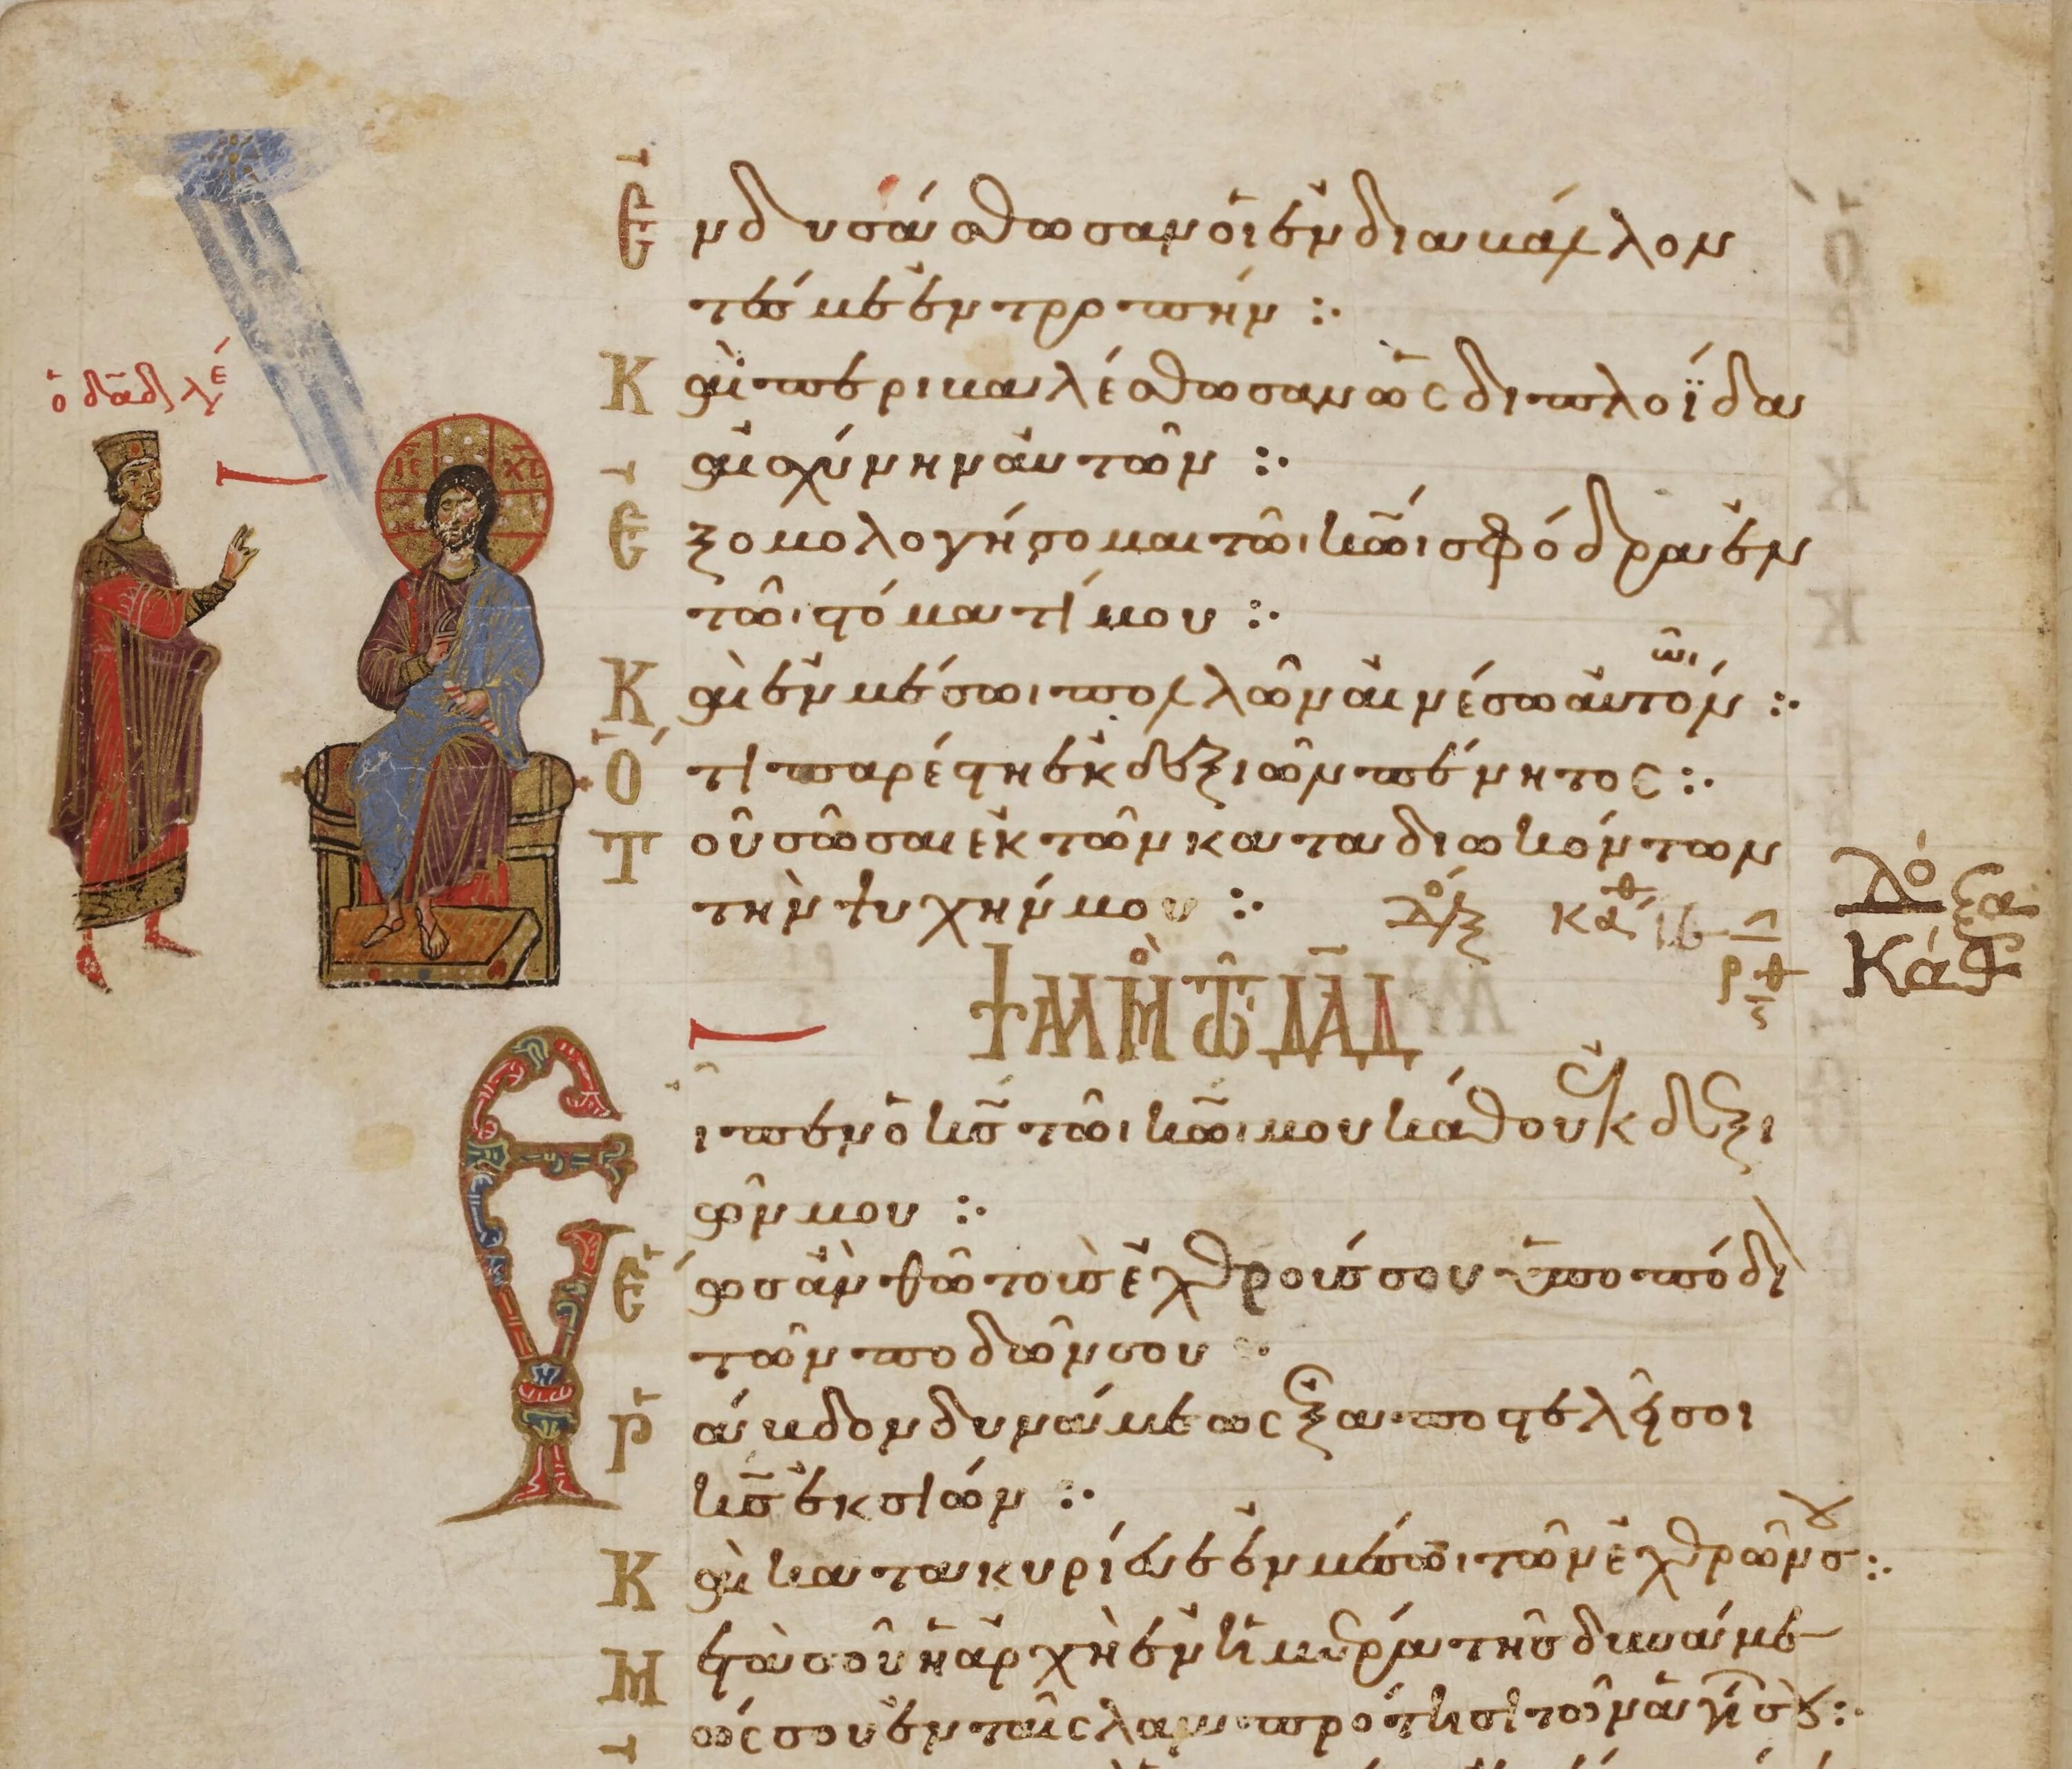 ὁ δᾱδ λέγ
ΙC ΧC
Ἐνδυσάσθωσαν οἱ ἐνδιαβάλλον
τές με ἐντροπήν :·
Καὶ περιβαλέσθωσαν ὡς διπλοΐδα
αἰσχύνην αὐτῶν :·
Ἐξομολογήσομαι τῶι κ̅ω̅ι σφόδρα ἐν
τῶι στόματί μου :·
Καὶ ἐν μέσωι πολλῶν αἰνέσω αὐτόν :·
ῶι
Ὅτι παρέστη ἐκ δεξιῶν πένητος :·
Τοῦ σῶσαι ἐκ τῶν καταδιωκόντων
τὴν ψυχήν μου :·
δόξα
Κάθ
ΨΑΛΜὸς Τῶ ΔΑ̅Δ
Εἶπεν ὁ κ̅σ̅ τῶι κ̅ω̅ι μου κάθου ἐκ δεξι
ῶν μου :·
Ἕως ἂν θῶ τοὺς ἐχθρούς σου ὑποπόδι
τῶν ποδῶν σου :·
Ῥάβδον δυνάμεως ἐξαποστελεῖ σοι
κ̅σ̅ ἐκ σιών :·
Καὶ κατακυρίευε ἐν μέσωι τῶν ἐχθρῶν σου :·
Μετὰ σοῦ ἡ ἀρχὴ ἐν ἡμέρα τῆς δυνάμε
ώς σου ἐν ταῖς λαμπρότησι τῶν ἁγί σου :·